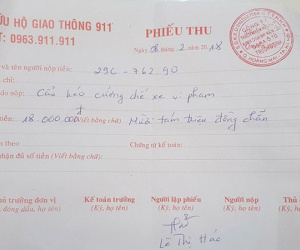 ỨU HỘ GIAO THÔNG 911
T: 0963.911.911
PHIẾU THU
Ngày 08 tháng 2 năm 2018
và tên người nộp tiền: 29C - 762.90
do nộp: Cẩu kéo cưỡng chế xe vi phạm
tiền: 18.000.000đ (Viết bằng chữ) Mười tám triệu đồng chẵn
theo: Chứng từ kế toán:
nhận đủ số tiền (Viết bằng chữ)
Thủ trưởng đơn vị Kế toán trưởng Người lập phiếu Người nộp Thủ
(Ký, đóng dấu, họ tên) (Ký, họ tên) (Ký, họ tên) (Ký, họ tên) (Ký
Lê Thị